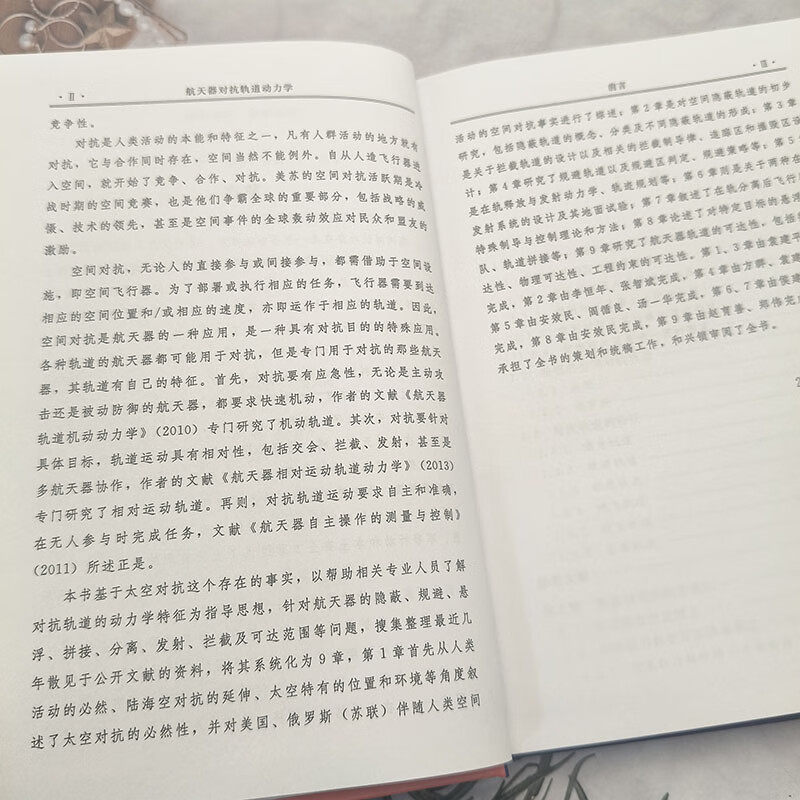 · Ⅱ ·
航天器对抗轨道动力学
竞争性。
对抗是人类活动的本能和特征之一，凡有人群活动的地方就有
对抗，它与合作同时存在，空间当然不能例外。自从人造飞行器进
入空间，就开始了竞争、合作、对抗。美苏的空间对抗活跃期是冷
战时期的空间竞赛，也是他们争霸全球的重要部分，包括战略的威
慑、技术的领先，甚至是空间事件的全球轰动效应对民众和盟友的
激励。
空间对抗，无论人的直接参与或间接参与，都需借助于空间设
施，即空间飞行器。为了部署或执行相应的任务，飞行器需要到达
相应的空间位置和/或相应的速度，亦即运作于相应的轨道。因此，
空间对抗是航天器的一种应用，是一种具有对抗目的的特殊应用。
各种轨道的航天器都可能用于对抗，但是专门用于对抗的那些航天
器，其轨道有自己的特征。首先，对抗要有应急性，无论是主动攻
击还是被动防御的航天器，都要求快速机动，作者的文献《航天器
轨道机动动力学》（2010）专门研究了机动轨道。其次，对抗要针对
具体目标，轨道运动具有相对性，包括交会、拦截、发射，甚至是
多航天器协作，作者的文献《航天器相对运动轨道动力学》（2013）
专门研究了相对运动轨道。再则，对抗轨道运动要求自主和准确，
在无人参与时完成任务，文献《航天器自主操作的测量与控制》
（2011）所述正是。
本书基于太空对抗这个存在的事实，以帮助相关专业人员了解
对抗轨道的动力学特征为指导思想，针对航天器的隐蔽、规避、悬
浮、拼接、分离、发射、拦截及可达范围等问题，搜集整理最近几
年散见于公开文献的资料，将其系统化为9章，第1章首先从人类
活动的必然、陆海空对抗的延伸、太空特有的位置和环境等角度叙
述了太空对抗的必然性，并对美国、俄罗斯（苏联）伴随人类空间
前言
· Ⅲ ·
活动的空间对抗事实进行了综述；第2章是对空间隐蔽轨道的初步
研究，包括隐蔽轨道的概念、分类及不同隐蔽轨道的形成；第3章
是关于拦截轨道的设计以及相关的拦截制导律、逃靡区和捕获区设
计；第4章研究了规避轨道以及规避区判定、规避策略等；第5
是在轨释放与发射动力学、轨道规划等；第6章则是关于两种在
发射系统的设计及其地面试验；第7章叙述了在轨分离后飞行
特殊制导与控制理论和方法；第8章论述了对特定目标的悬浮
队、轨道拼接等；第9章研究了航天器轨道的可达性，包括
达性、物理可达性、工程约束的可达性。第1、3章由袁建平
完成，第2章由李恒年、张智斌完成，第4章由方群、袁建
第5章由安效民、阎循良、汤一华完成，第6、7章由侯建
完成，第8章由安效民完成，第9章由赵育善、郑伟完
承担了全书的策划和统稿工作，和兴锁审阅了全书。
2